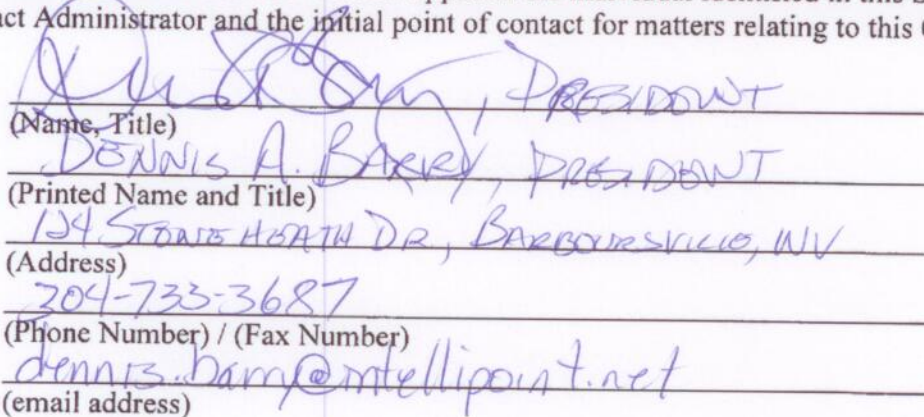 act Administrator and the initial point of contact for matters relating to this
, PRESIDENT
(Name, Title)
DENNIS A. BARRY, PRESIDENT
(Printed Name and Title)
124 STONE HEATH DR, BARBOURSVILLE, WV
(Address)
304-733-3687
(Phone Number) / (Fax Number)
dennis.barry@intellipoint.net
(email address)